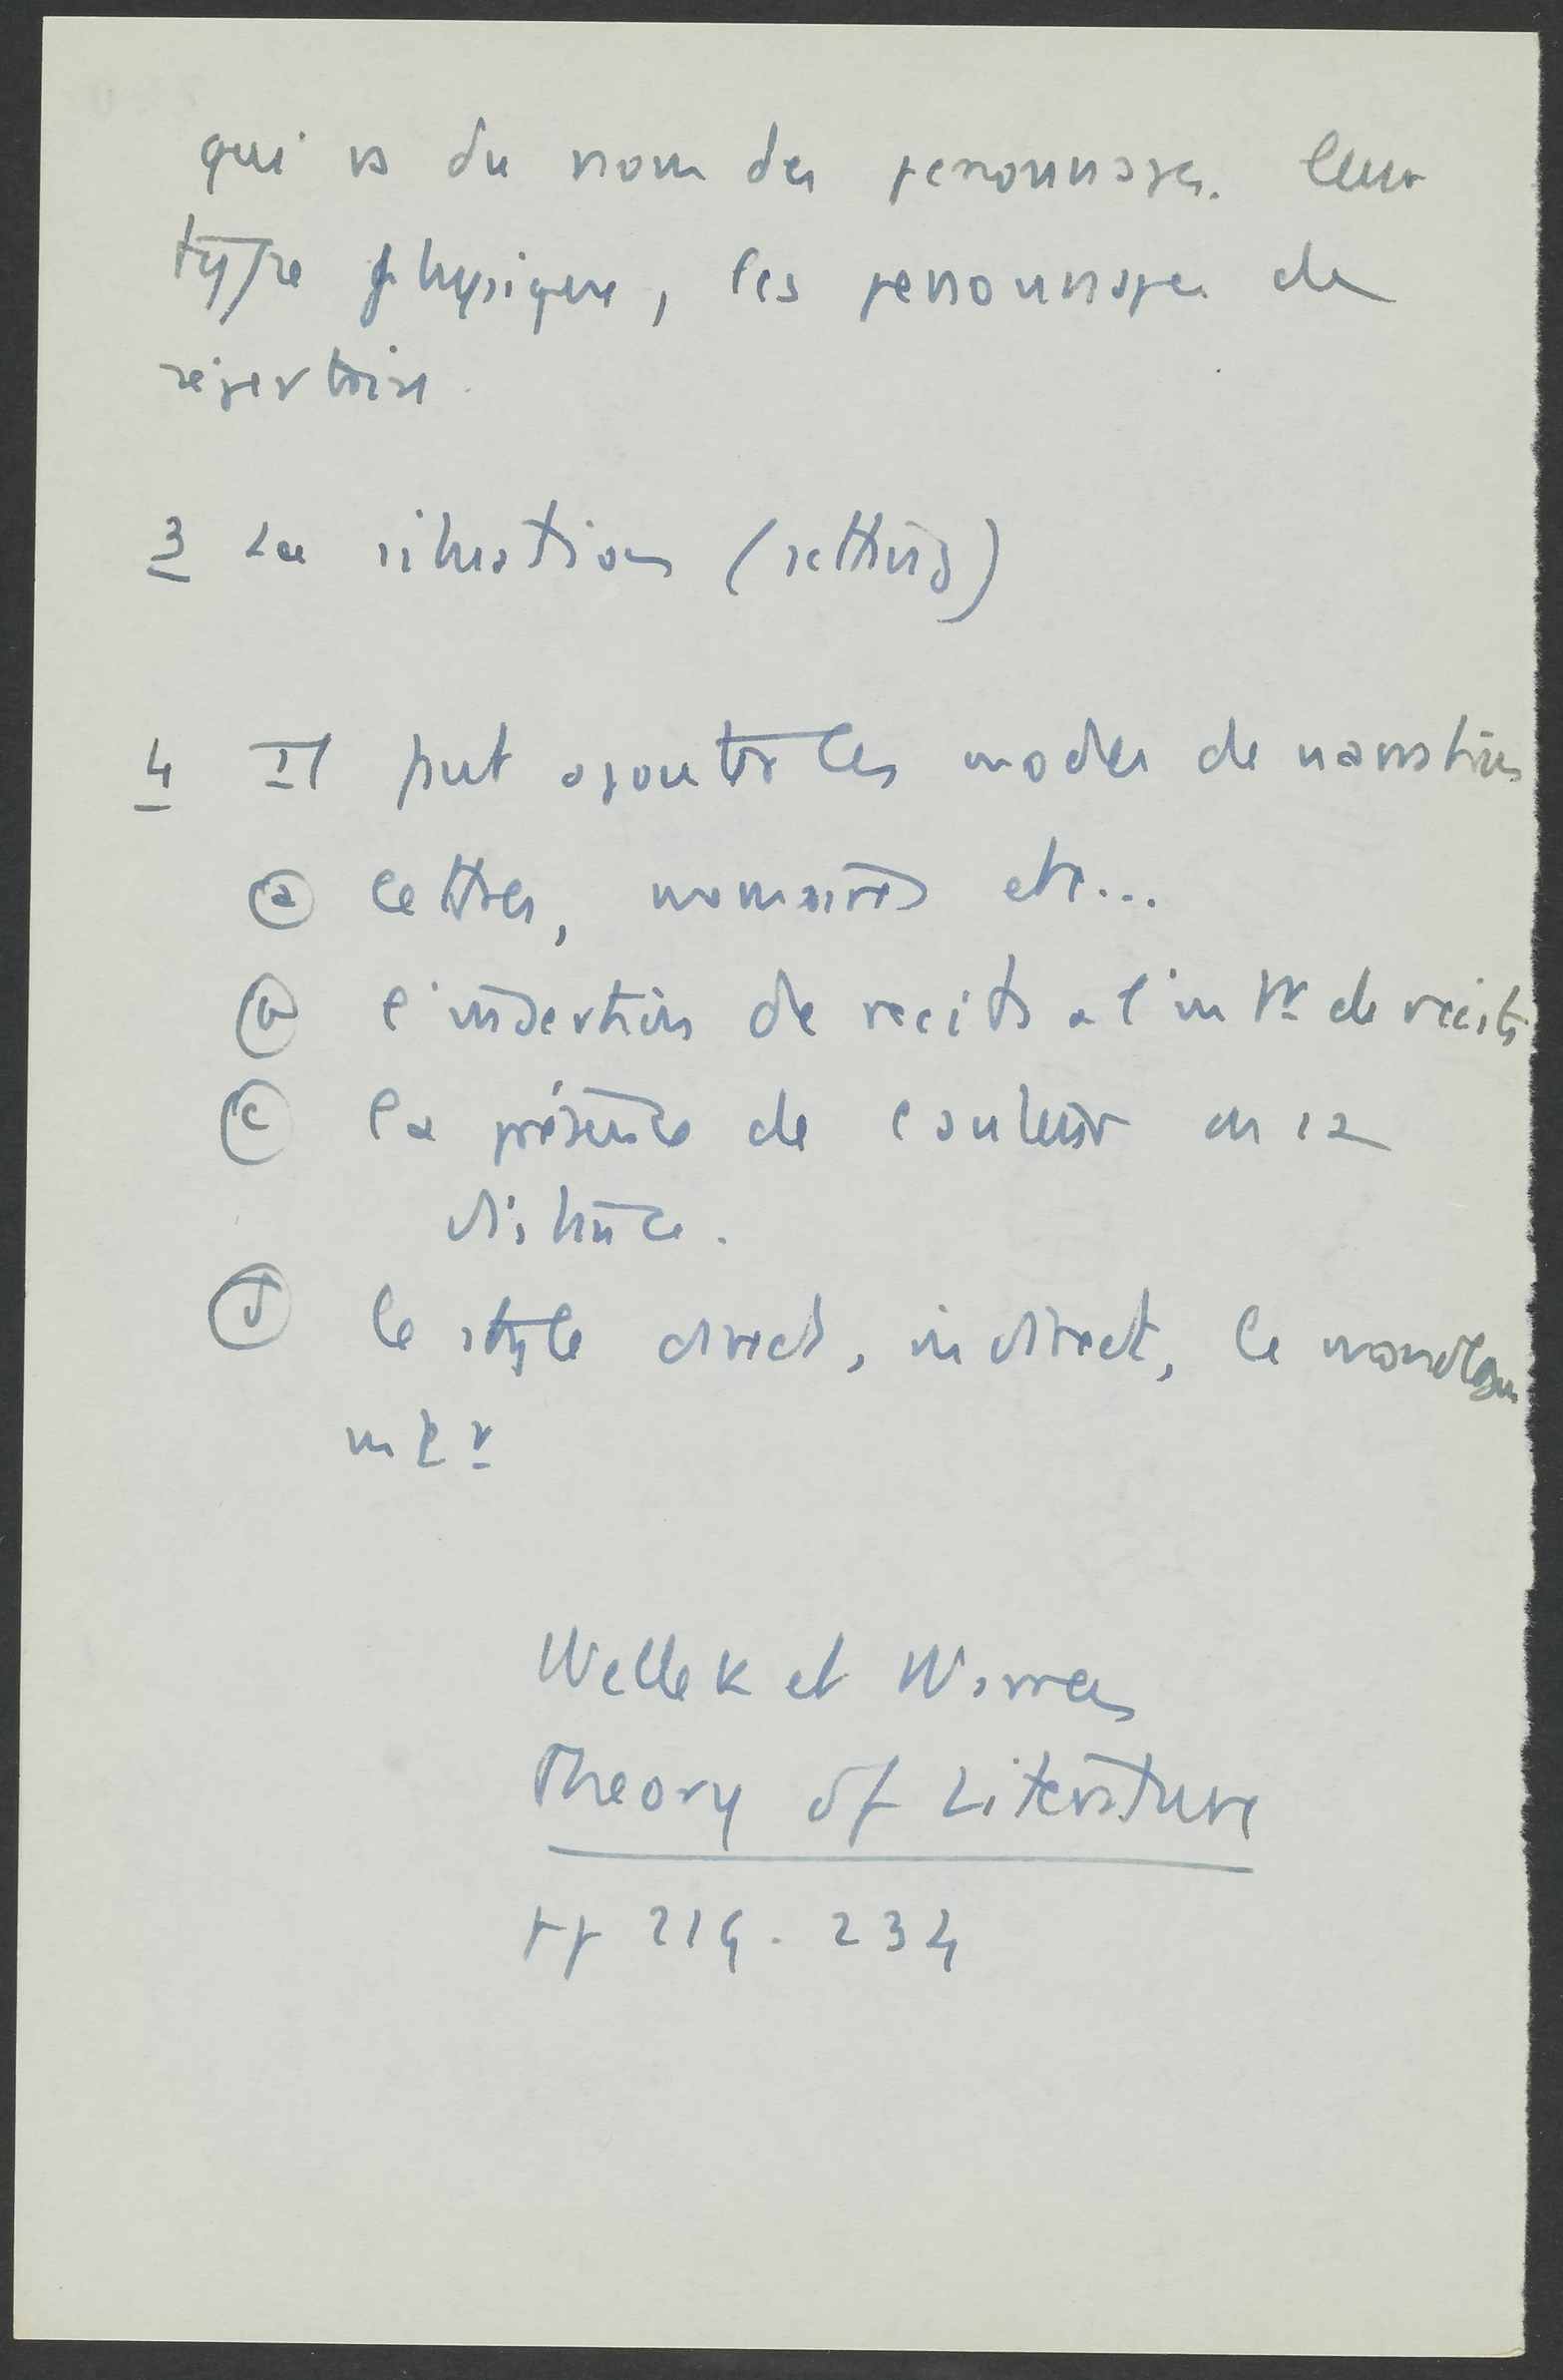 qui va du nom des personnages. leur
type physique, les personnages de
répertoire.
3 La situation (setting)
4 Il faut ajouter les modes de narration
(a) lettres, mémoires etc...
(b) l'insertion de récits à l'intr de récits
(c) la présence de l'auteur ou sa
distance.
(d) le style direct, indirect, le monologue
Wellek et Warren
Theory of Literature
pp 219. 234